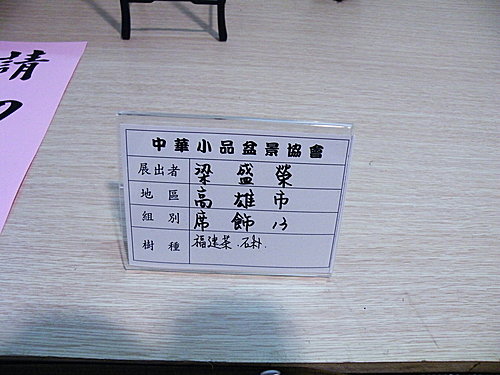 請
中華小品盆景協會
展出者 梁盛榮
地區 高雄市
組別 席飾 13
樹種 福建茶.石朴.